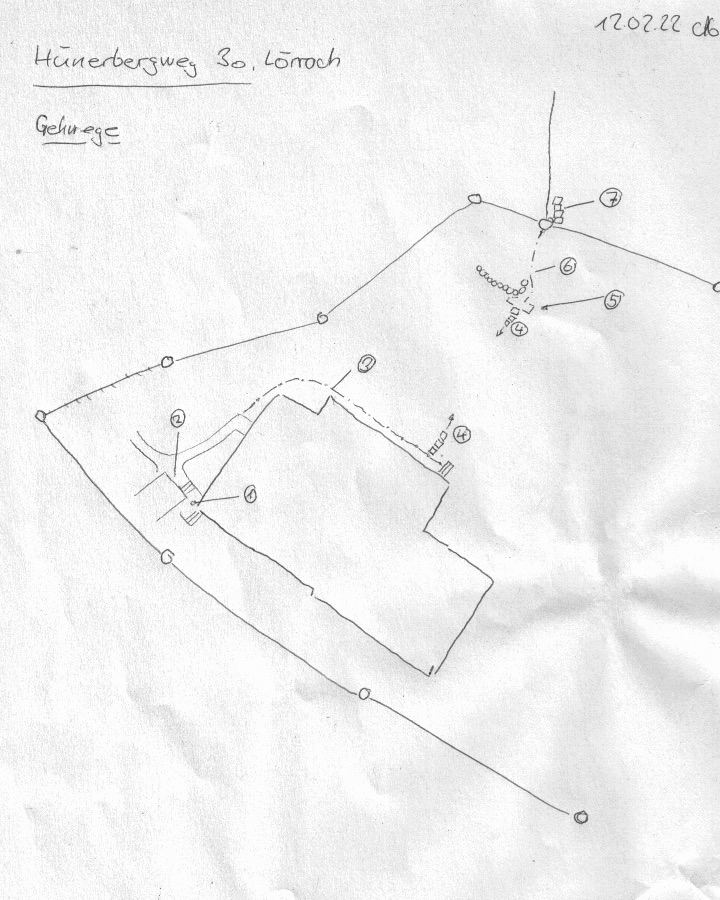 12.02.22 
Hünerbergweg 30, Lörrach
Gehwege
7
6
5
4
3
4
2
1